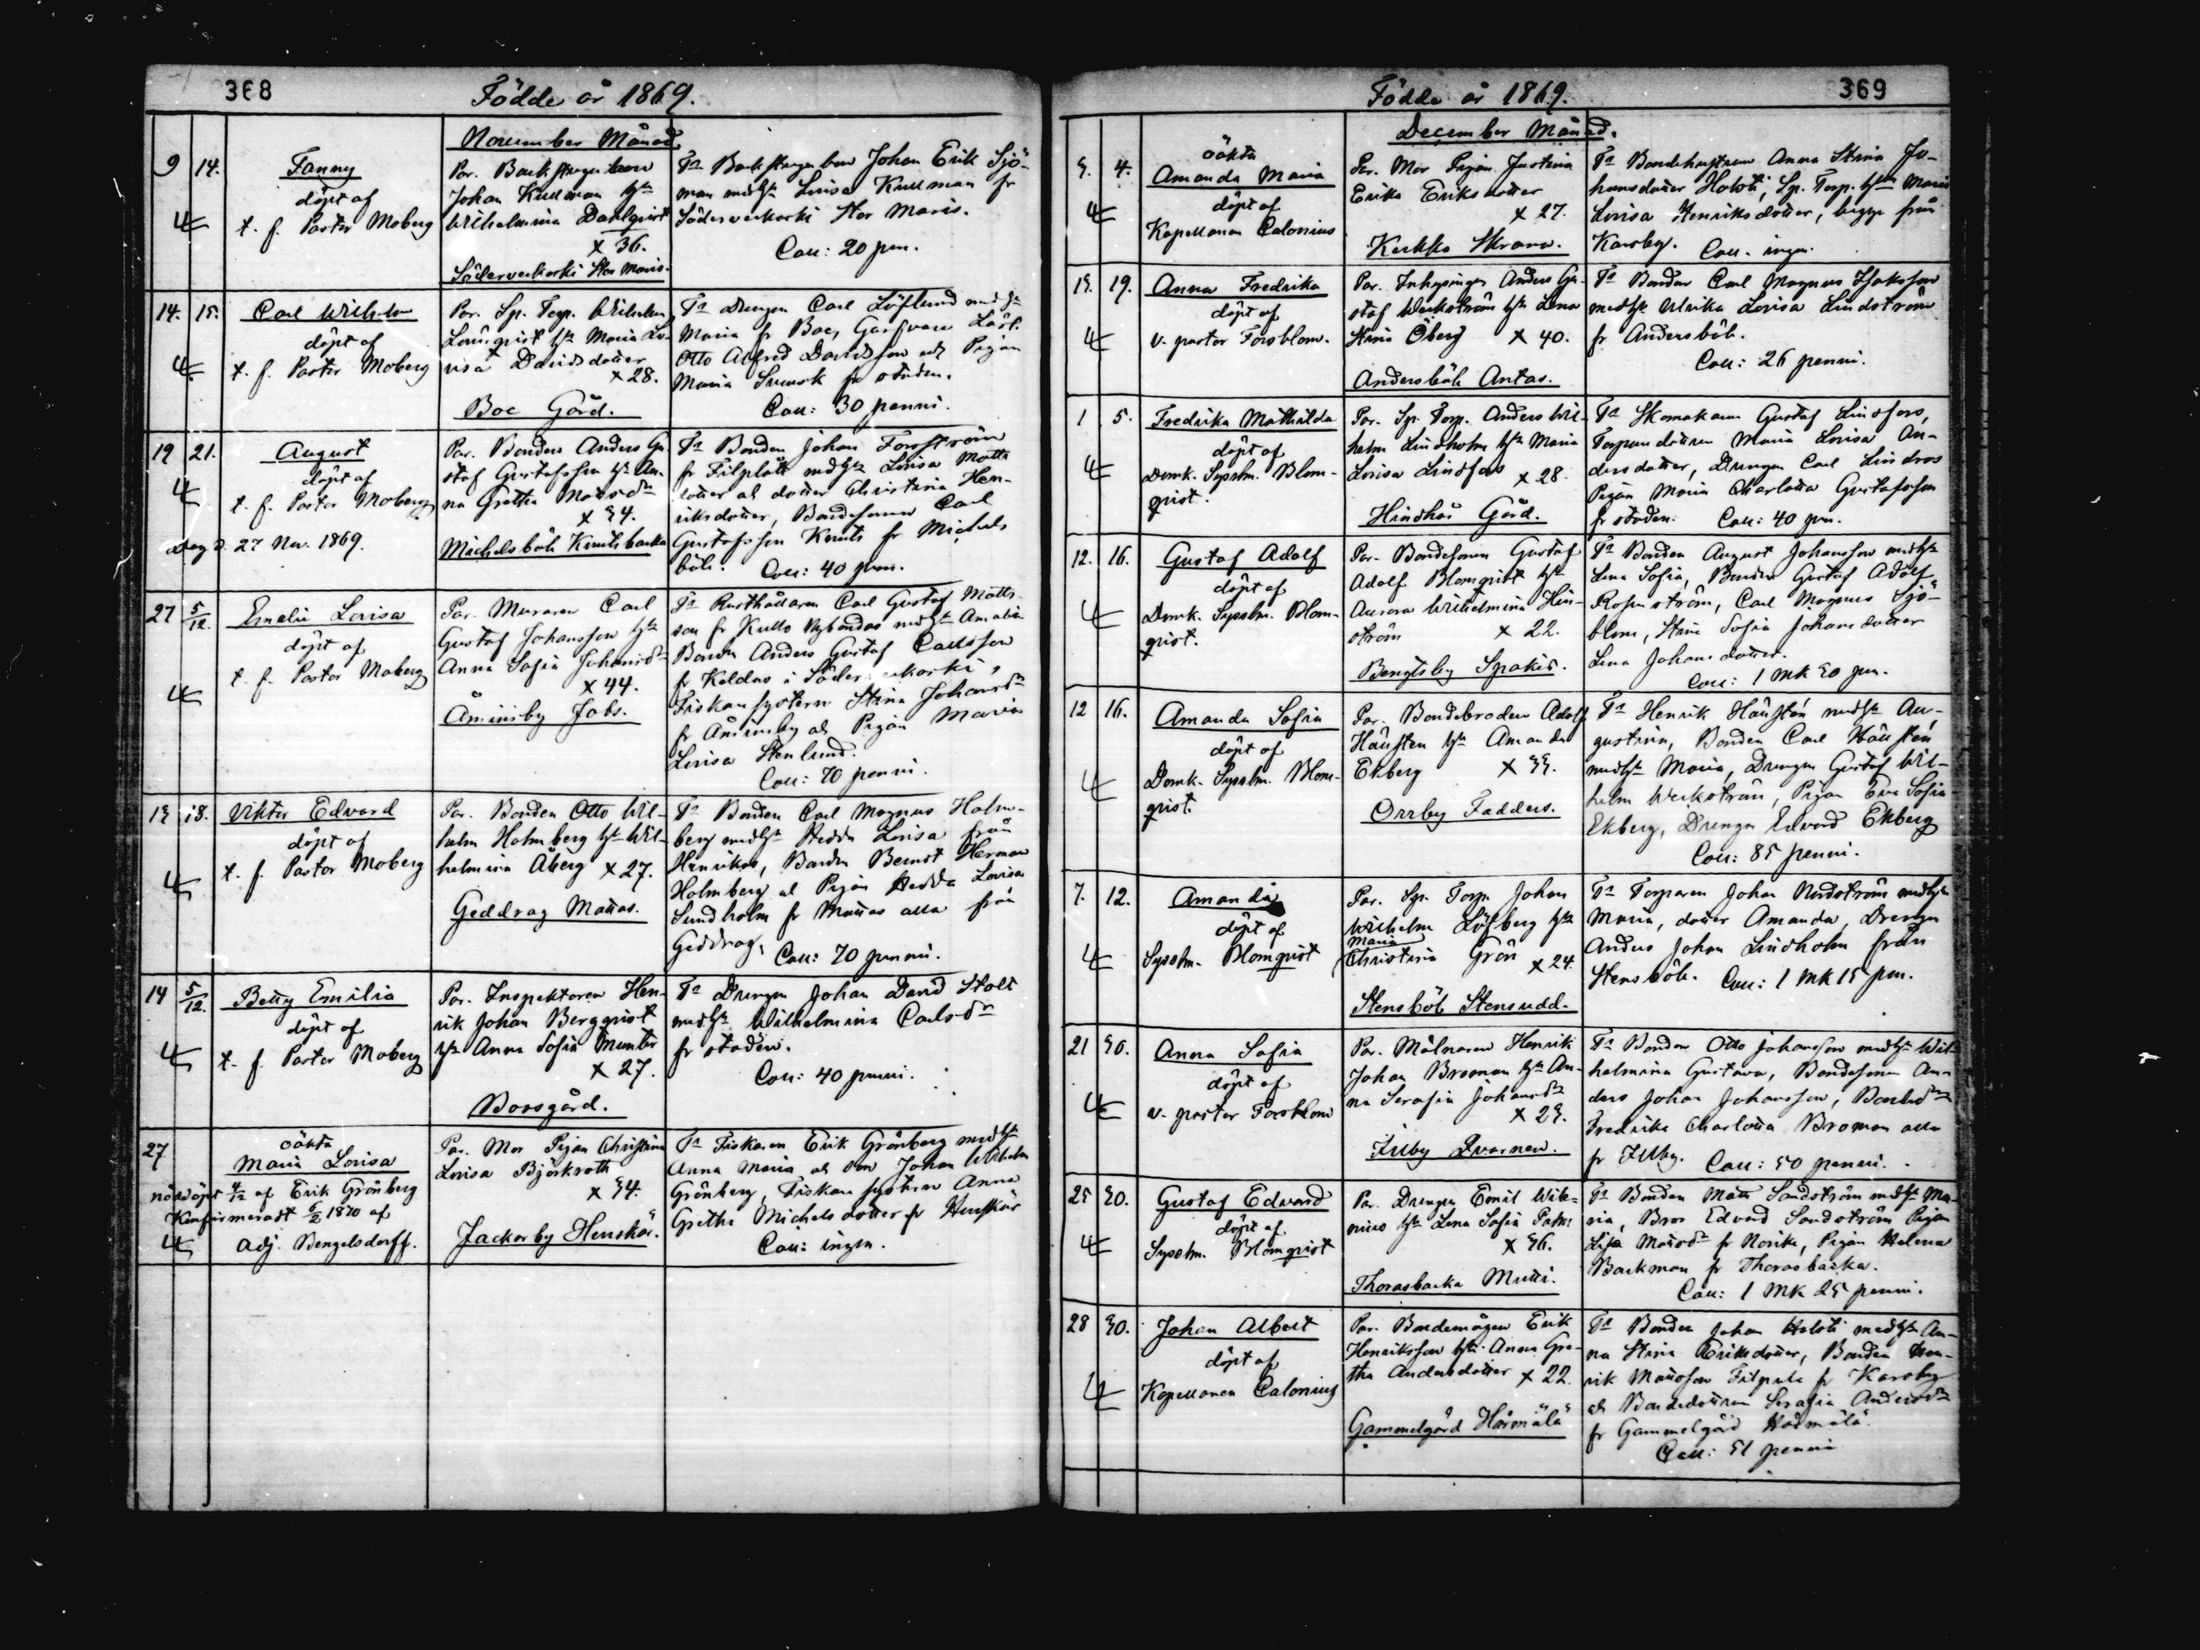 368
Födde år 1869.
November Månad.
9 14. Fanny
döpt af
t. f. Pastor Moberg
Par. Backstugukarn
Johan Kullman h:u
Wilhelmina Dahlqvist
x 36.
Söderveckoski Stor Maris.
Johan Erik Sjö-
man med h:u Lovisa Kullman fr
Söderveckoski Stor Maris.
Coll: 20 pen.
14. 15. Carl Wilhelm
döpt af
t. f. Pastor Moberg
Par. Sp. Torp. Wilhelm
Lönnqvist h:u Maria Lo-
visa Davidsdotter
x 28.
Boe Gård.
Fa Drengen Carl Löflund med h:u
Maria fr Boe,
Otto Alfred Davidsson och Pigan
Maria Svensk fr staden.
Coll: 30 penni.
19 21. August
döpt af
t. f. Pastor Moberg
27 Nov. 1869.
Par. Bonden Anders Gu-
staf Gustafsson h:u An-
na Gretha Matsd:r
x 34.
Michelsböle Knutsbacka
Fa Bonden Johan Forsström
fr Filplatts med h:u Lovisa Matts
dotter och dotter Christina Hen-
riksdotter, Bondesonen Carl
Gustafsson Knuts fr Michels
böle. Coll: 40 pen.
27 5/12. Emelie Lovisa
döpt af
t. f. Pastor Moberg
Par. Muraren Carl
Gustaf Johansson h:u
Anna Sofia Johansd:r
x 44.
Åminsby Jobs.
Fa Rusthållaren Carl Gustaf Matts-
son fr Kullo Nybondas med h:u Amalia
Bonden Anders Gustaf Carlsson
fr Keldas i Söderveckoski,
Fiskarsystern Stina Johansd:r
fr Åminsby och Pigan Maria
Lovisa Stenlund.
Coll: 70 penni.
13 18. Viktor Edvard
döpt af
t. f. Pastor Moberg
Par. Bonden Otto Wil-
helm Holmberg h:u Wil-
helmina Åberg x 27.
Geddrag Mattas.
Fa Bonden Carl Magnus Holm-
berg med h:u Hedda Lovisa från
Henrikas, Bonden Bernt Herman
Holmberg och Pigan Hedda Lovisa
Sundholm fr Mattas alla från
Geddrag. Coll: 70 penni.
14 5/12. Betty Emilia
döpt af
t. f. Pastor Moberg
Par. Inspektoren Hen-
rik Johan Bergqvist
h:u Anna Sofia Munter
x 27.
Borsgård.
Fa Drengen Johan David Stolt
med h:u Wilhelmina Carlsd:r
fr staden.
Coll: 40 penni.
27 oäkta
Maria Lovisa
nöddöpt 4/12 af Erik Grönberg
Konfirmeradt 6/2 1870 af
Adj. Bengelsdorff.
Par. Mor Pigan Christina
Lovisa Björkroth
x 34.
Jackarby Henskär.
Fa Fiskaren Erik Grönberg med h:u
Anna Maria och son Johan Wilhelm
Grönberg, Fiskarsystern Anna
Gretha Michelsdotter fr Henskär
Coll: ingen.
369
Födde år 1869.
December Månad.
3. 4. oäkta
Amanda Maria
döpt af
Kapellanen Calonius
Par. Mor Pigan Justina
Erika Eriksdotter
x 27.
Kerkko Skrara.
Fa Bondehustrun Anna Stina Jo-
hansdotter Holsti, Sp. Torp. h:u Maria
Lovisa Henriksdotter, begge från
Karsby. Coll. ingen.
13. 19. Anna Fredrika
döpt af
v. pastor Forsblom.
Par. Inhysingen Anders Gu-
staf Weckström h:u Lena
Stina Öberg x 40.
Andersböle Antas.
Fa Bonden Carl Magnus Isaksson
med h:u Ulrika Lovisa Lindström
fr Andersböle.
Coll: 26 penni.
1 5. Fredrika Mathilda
döpt af
Domk. Syssln. Blom-
qvist.
Par. Sp. Torp. Anders Wil-
helm Lindholm h:u Maria
Lovisa Lindfors x 28.
Hindhår Gård.
Fa Skomakaren Gustaf Lindfors,
Torparedottren Maria Lovisa An-
dersdotter, Drengen Carl Lindros
Pigan Maria Charlotta Gustafsson
fr staden. Coll: 40 pen.
12. 16. Gustaf Adolf
döpt af
Domk. Syssln. Blom-
qvist.
Par. Bondesonen Gustaf
Adolf Blomqvist h:u
Aurora Wilhelmina Hin-
ström x 22.
Bengtsby Spakis.
Fa Bonden August Johansson med h:u
Lena Sofia, Bonden Gustaf Adolf
Rosenström, Carl Magnus Sjö-
blom, Stina Sofia Johansdotter
Lena Johansdotter.
Coll: 1 mk 50 pen.
12 16. Amanda Sofia
döpt af
Domk. Syssln. Blom-
qvist.
Par. Bondebrodern Adolf
Hällstén h:u Amanda
Ekberg x 33.
Orrby Fadders.
Fa Henrik Hällstén med h:u Au-
gustina, Bonden Carl Hällstén
med h:u Maria, Drengen Gustaf Wil-
helm Weckström, Pigan Eva Sofia
Ekberg, Drengen Edvard Ekberg
Coll: 85 penni.
7. 12. Amanda
döpt af
Syssln. Blomqvist
Par. Sp. Torp. Johan
Wilhelm Löfberg h:u
Maria
Christina Grön x 24.
Stensböle Stensudd.
Fa Torparen Johan Nordström med h:u
Maria, dotter Amanda, Drengen
Anders Johan Lindholm från
Stensböle. Coll: 1 mk 15 pen.
21 30. Anna Sofia
döpt af
v. pastor Forsblom
Par. Mölnaren Henrik
Johan Broman h:u An-
na Serafia Johansd:r
x 23.
Illby Qvarnen.
Fa Bonden Otto Johansson med h:u Wil-
helmina Gustava, Bondesonen An-
ders Johan Johansson,
Fredrika Charlotta Broman alla
fr Illby. Coll: 50 penni.
25 30. Gustaf Edvard
döpt af
Syssln. Blomqvist
Par. Drengen Emil Wile-
nius h:u Lena Sofia
x 36.
Thorasbacka Mutti.
Fa Bonden Matts Sandström med h:u Ma-
ria, Bror Edvard Sandström Pigan
Lisa Matsd:r fr Norike, Pigan Helena
Backman fr Thorasbacka.
Coll: 1 mk 25 penni.
28 30. Johan Albert
döpt af
Kapellanen Calonius
Par. Bondemågen Erik
Henriksson h:u Anna Gre-
tha Andersdotter x 22.
Gammelgård Hörmälä
Fa Bonden Johan Holsti med h:u An-
na Stina Eriksdotter, Bonden Hen-
rik Mattsson Filpula fr Karsby
och Bondedottren Serafia Andersd:r
fr Gammelgård Hörmälä.
Coll: 51 penni